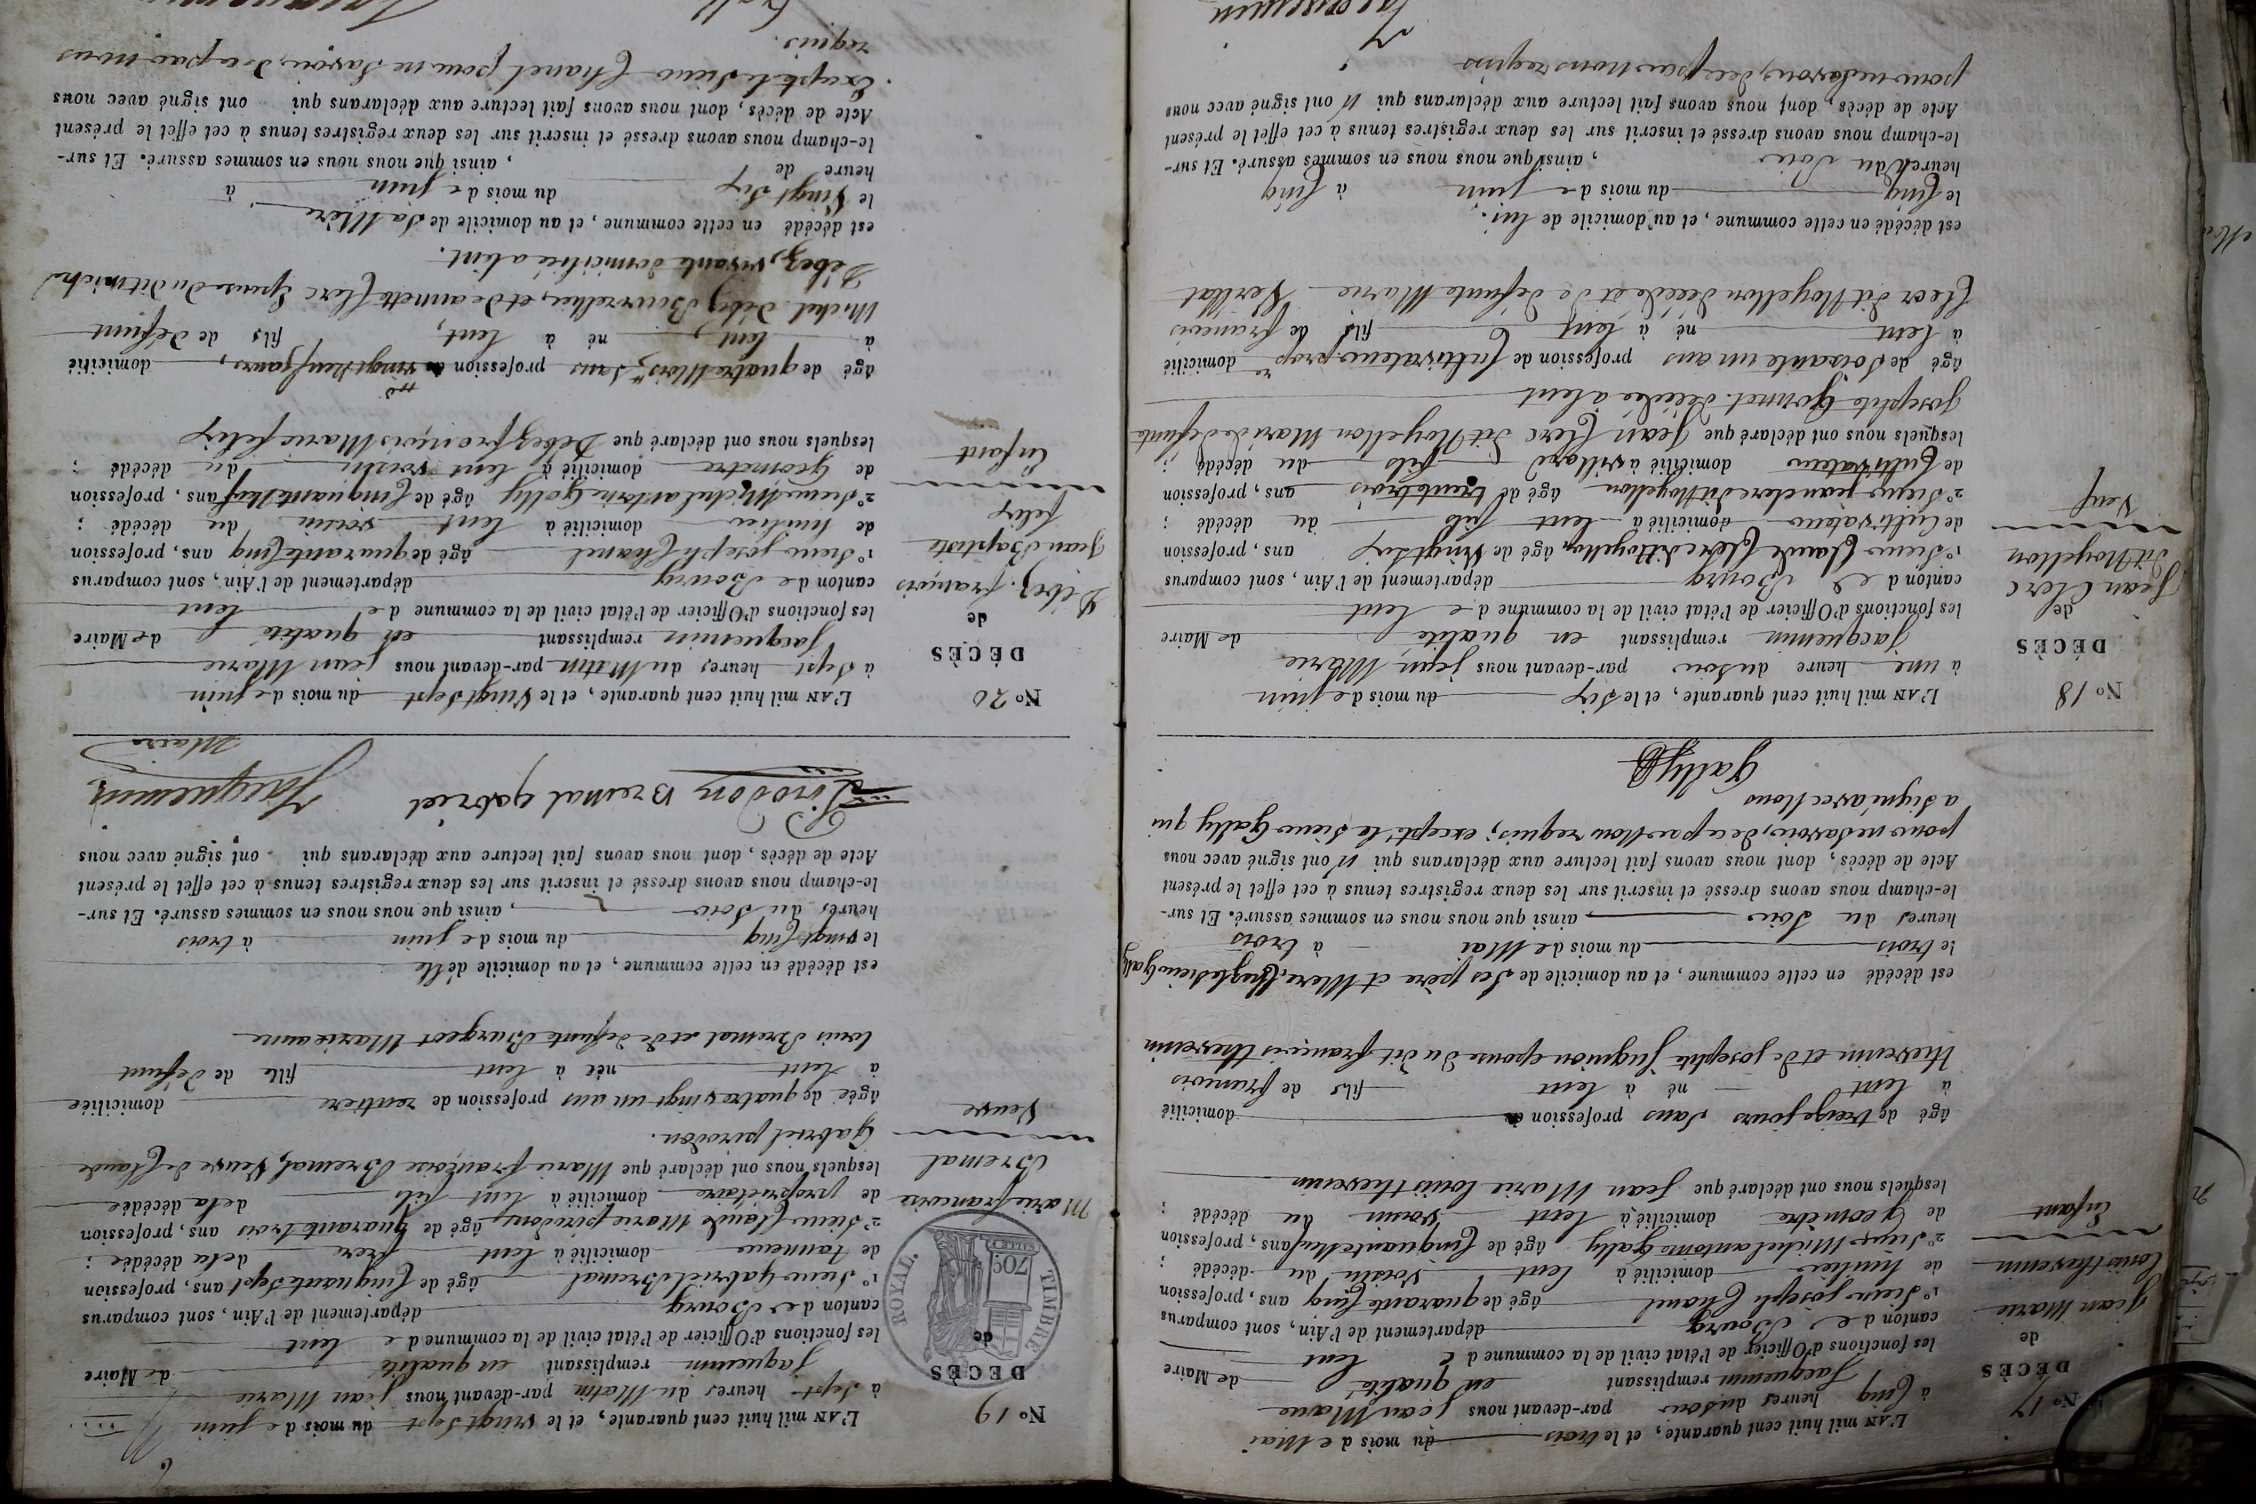 N° 17
DÉCÈS
de
Jean Marie
Louis thevenin
Enfant
L'AN mil huit cent quarante, et le trois du mois de Mai
à Cinq heures du soir par-devant nous Jean Marie
Jacquemin remplissant en qualité de Maire
les fonctions d'Officier de l'état civil de la commune de Lent
canton de Bourg département de l'Ain, sont comparus
1° Sieur Joseph Chanel âgé de quarante Cinq ans, profession
de huilier domicilié à Lent voisin du décédé ;
2° Sieur Michel antoine Gally âgé de Cinquante Neuf ans, profession
de Géomètre domicilié à Lent voisin du décédé :
lesquels nous ont déclaré que Jean Marie Louis thevenin
âgé de treize jours sans profession domicilié
à Lent né à Lent fils de francois
thevenin et de josephte juginon epouse du dit françois thevenin
est décédé en celle commune, et au domicile de Ses père et Mere
le trois du mois de Mai à trois
heures du soir, ainsi que nous nous en sommes assuré. Et sur-
le-champ nous avons dressé et inscrit sur les deux registres tenus à cet effet le présent
Acte de décès, dont nous avons fait lecture aux déclarans qui n'ont signé avec nous
pour ne savoir, de ce par Nous requis; excepté le sieur Gally qui
a signé avec Nous
Gally
N° 18
DÉCÈS
de
Jean Clerc
dit Noyellon
Veuf
L'AN mil huit cent quarante, et le Six du mois de juin
à une heure du soir par-devant nous Jean Marie
Jacquemin remplissant en qualité de Maire
les fonctions d'Officier de l'état civil de la commune de Lent
canton de Bourg département de l'Ain, sont comparus
1° Sieur Claude Clerc dit Noyellon âgé de Vingt Six ans, profession
de Cultivateur domicilié à Lent fils du décédé ;
2° Sieur jean clerc dit Noyellon âgé de trente trois ans, profession
de Cultivateur domicilié à villard fils du décédé ;
lesquels nous ont déclaré que Jean Clerc dit Noyellon Mari de defunte
josephte Gonnet décédée a Lent
âgé de Soixante un ans profession de Cultivateur propre domicilié
à Lent né à Lent fils de francois
Clerc dit Noyellon décédé et de défunte Marie Verllat
est décédé en celle commune, et au domicile de lui.
le Cinq du mois de juin à Cinq
heures du Soir, ainsi que nous nous en sommes assuré. Et sur-
le-champ nous avons dressé et inscrit sur les deux registres tenus à cet effet le présent
Acte de décès, dont nous avons fait lecture aux déclarans qui n'ont signé avec nous
pour ne savoir, de ce par nous requis
Jacquemin
N° 19
DÉCÈS
de
TIMBRE ROYAL.
70c
Marie francoise
Bremal
Veuve
L'AN mil huit cent quarante, et le vingt Sept du mois de juin
à Sept heures du Matin par-devant nous Jean Marie
Jaquemin remplissant en qualité de Maire
les fonctions d'Officier de l'état civil de la commune de Lent
canton de Bourg département de l'Ain, sont comparus
1° Sieur Gabriel Bremal âgé de Cinquante Sept ans, profession
de tanneur domicilié à Lent frere de la décédée ;
2° Sieur Claude Marie pirodon âgé de quarante trois ans, profession
de propriétaire domicilié à Lent fils de la décédée
lesquels nous ont déclaré que Marie françoise Bremal, Veuve de Claude
Gabriel pirodon.
âgée de quatre vingt un ans profession de rentiere domiciliée
à Lent née à Lent fille de défunt
louis Bremal et de defunte Burgeot Marieanne
est décédé en celle commune, et au domicile delle
le vingt Cinq du mois de juin à trois
heures du Soir, ainsi que nous nous en sommes assuré. Et sur-
le-champ nous avons dressé et inscrit sur les deux registres tenus à cet effet le présent
Acte de décès, dont nous avons fait lecture aux déclarans qui ont signé avec nous
Pirodon Bremal gabriel Jacquemin
Maire
N° 20
DÉCÈS
de
Débez. françois
Jean Baptiste
felix
Enfant
L'AN mil huit cent quarante, et le Vingt Sept du mois de juin
à Sept heures du Matin par-devant nous Jean Marie
Jacquemin remplissant en qualité de Maire
les fonctions d'Officier de l'état civil de la commune de Lent
canton de Bourg département de l'Ain, sont comparus
1° Sieur joseph Chanel âgé de quarante Cinq ans, profession
de huilier domicilié à Lent voisin du décédé ;
2° Sieur Michel antoine Gally âgé de Cinquante Neuf ans, profession
de Géomètre domicilié à Lent voisin du décédé :
lesquels nous ont déclaré que Débez françois Marie felix
âgé de quatre Mois sans profession vingt Neuf jours, domicilié
à Lent, né à Lent, fils de defunt
Michel Débez Bourrelier, et de annette Clerc Epouse du dit michel
Débez, vivante domiciliée a Lent.
est décédé en celle commune, et au domicile de Sa Mère
le Vingt Six du mois de juin à
heure de , ainsi que nous nous en sommes assuré. Et sur-
le-champ nous avons dressé et inscrit sur les deux registres tenus à cet effet le présent
Acte de décès, dont nous avons fait lecture aux déclarans qui ont signé avec nous
Excepté le Sieur Chanel pour ne Savoir, de ce par nous
requis.